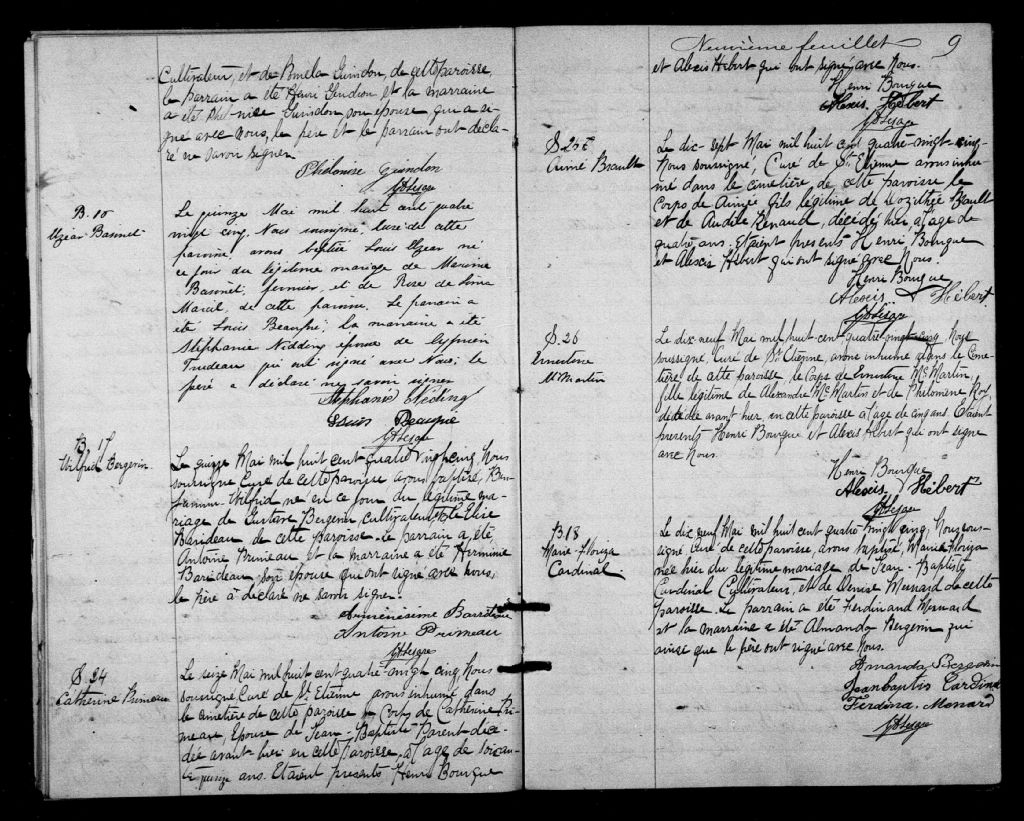 Cultivateur, et de Guindon, de cette paroisse,
le parrain a été Henri Gendron et la marraine
a été Phelonise Guindon son épouse qui a si-
gné avec nous, le père et le parrain ont décla-
ré ne savoir signer.
Philonise Guindon
B. 16
Ozéar Basinet
Le quinze Mai mil huit cent quatre
vingt cinq, Nous soussigné, curé de cette
paroisse, avons baptisé Louis Ozéar né
ce jour du légitime mariage de
fermier, et de Rose de Lima
Marcil, de cette paroisse. Le parrain a
été Louis Beaupré; la marraine a été
Stéphanie Nedding épouse de Cyprien
Trudeau qui ont signé avec Nous; le
père a déclaré ne savoir signer
Stephanie Neding
Louis Beaupré
B. 17
Wilfrid Bergevin
Le quinze Mai mil huit cent quatre vingt cinq Nous
soussigné Curé de cette paroisse avons baptisé, Ben-
jamin-Wilfrid né en ce jour du légitime ma-
riage de Gustave Bergevin cultivateur, et de Elise
Barideau de cette Paroisse. Le parrain a été,
Antoine Primeau et la marraine a été Herminie
Barideau, son épouse qui ont signé avec nous,
le père a déclaré ne savoir signer.
Antoine Primeau
S. 24
Catherine Primeau
Le seize Mai mil huit cent quatre-vingt cinq, Nous
soussigné Curé de St Etienne avons inhumé dans
le cimetière de cette paroisse le Corps de Catherine Pri-
meau, Epouse de Jean-Baptiste Parent décé-
dée avant hier en cette paroisse, à l'age de soixan-
te quinze ans. Etaient présents Henri Bourque
Neuvième feuillet 9
et Alexis Hébert qui ont signé avec Nous.
Henri Bourque
Alexis Hébert
S 25
Aimé Brault
Le dix-sept Mai mil huit cent quatre-vingt-cinq
Nous soussigné, Curé de St. Etienne avons inhu-
mé dans le cimetière de cette paroisse le
Corps de Aimée fils légitime de Dozithée Brault
et de Renaud, décédé hier, a l'age de
quatre ans. Etaient présents Henri Bourque
et Alexis Hébert qui ont signé avec Nous.
Henri Bourque
Alexis Hébert
S. 26
Ernestine
McMartin
Le dix neuf Mai mil huit-cent quatre-vingt-cinq, Nous
soussigné Curé de St Etienne, avons inhumé dans le Cime-
tière de cette paroisse, le Corps de Ernestine McMartin,
fille légitime de Alexandre McMartin et de Philomène Roy,
décédée avant hier, en cette paroisse a l'age de cinq ans. Etaient
présents Henri Bourque et Alexis Hébert qui ont signé
avec Nous.
Henri Bourque
Alexis Hébert
B. 18
Marie-Floriza
Cardinal.
Le dix neuf Mai mil huit cent quatre vingt cinq, Nous sous-
signé Curé de cette paroisse, avons baptisé, Marie Floriza
née hier du légitime mariage de Jean-Baptiste
Cardinal Cultivateur, et de Denise Mesnard de cette
paroisse. Le parrain a été Ferdinand Mesnard
et la marraine a été Almanda Bergevin qui
ainsi que le père ont signé avec Nous.
Amanda Bergevin
Jeanbaptis Cardinal
Ferdina. Menard